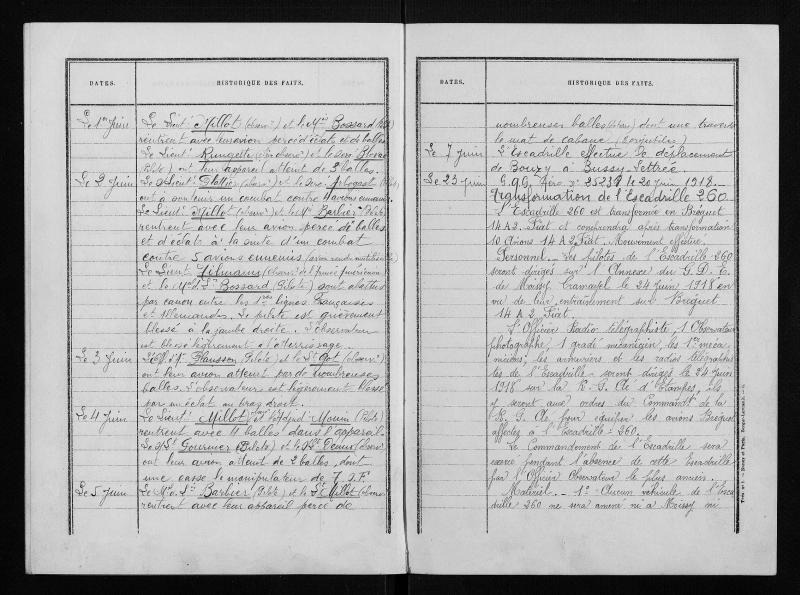 DATES.
HISTORIQUE DES FAITS.
Le 1er Juin
Le Lieut Millot (observr) et le Mis Bossard
rentrent avec leur avion percé d'éclats et de balles
Le Lieut Rungette et le
ont leur appareil atteint de 3 balles.
Le 2 Juin
Le S Lieut (observr) et le Arbogast
ont à soutenir un combat contre avions ennemis
Le Lieut Millot (observr) et le Mis Barbier (Pilote)
rentrent avec leur avion percé de balles
et d'éclats à la suite d'un combat
contre 5 avions ennemis
Le Lieut (observr de l'armée américaine)
et le Bossard (Pilote) sont abattus
par canon entre les 1ères lignes Françaises
et Allemandes. Le pilote est grièvement
blessé à la jambe droite. L'observateur
est blessé légèrement à l'atterrissage.
Le 3 Juin
Pilote et le St Got (observr)
ont leur avion atteint par de nombreuses
balles. L'observateur est légèrement blessé
par un éclat au bras droit.
Le 4 Juin
Le Lieut Millot et Mouin (Pilote)
rentrent avec 4 balles dans l'appareil.
Le Fournier (Pilote) et le
ont leur avion atteint de 2 balles, dont
une casse le manipulateur de T.S.F.
Le 5 Juin
Le Barbier (Pilote) et le Lt Millot (observr)
rentrent avec leur appareil percé de
DATES.
HISTORIQUE DES FAITS.
nombreuses balles dont une traverse
le mat de cabane
Le 7 Juin
L'Escadrille effectue le déplacement
de Bouzy à Bussy-Lettrée
Le 23 Juin
G.Q.G. Aéro n° 25238 le 20 Juin 1918.
Transformation de l'Escadrille 260
L'Escadrille 260 est transformée en Breguet
14 A 2. Fiat et comprendra après transformation
10 avions 14 A 2 Fiat. Mouvement effectué.
Personnel. Les pilotes de l'Escadrille 260
seront dirigés sur l'Annexe du G. D. E.
de Moissy Cramayel le 24 Juin 1918 en
vu de leur entraînement sur Breguet
14 A 2 Fiat.
L'Officier Radio télégraphiste, 1 Observateur
photographe, 1 gradé mécanicien, les 1ers méca-
niciens, les armuriers et les radios télégraphis-
tes de l'Escadrille seront dirigés le 24 Juin
1918 sur la R. G. Ae d'Etampes, ils
y seront aux ordres du Commandt de la
R. G. Ae pour équiper les avions Breguet
affectés à l'Escadrille 260.
Le Commandement de l'Escadrille sera
exercé pendant l'absence de cette Escadrille
par l'Officier Observateur le plus ancien.
Matériel. 1° Aucun véhicule de l'Esca
drille 260 ne sera amené ni à Moissy ni